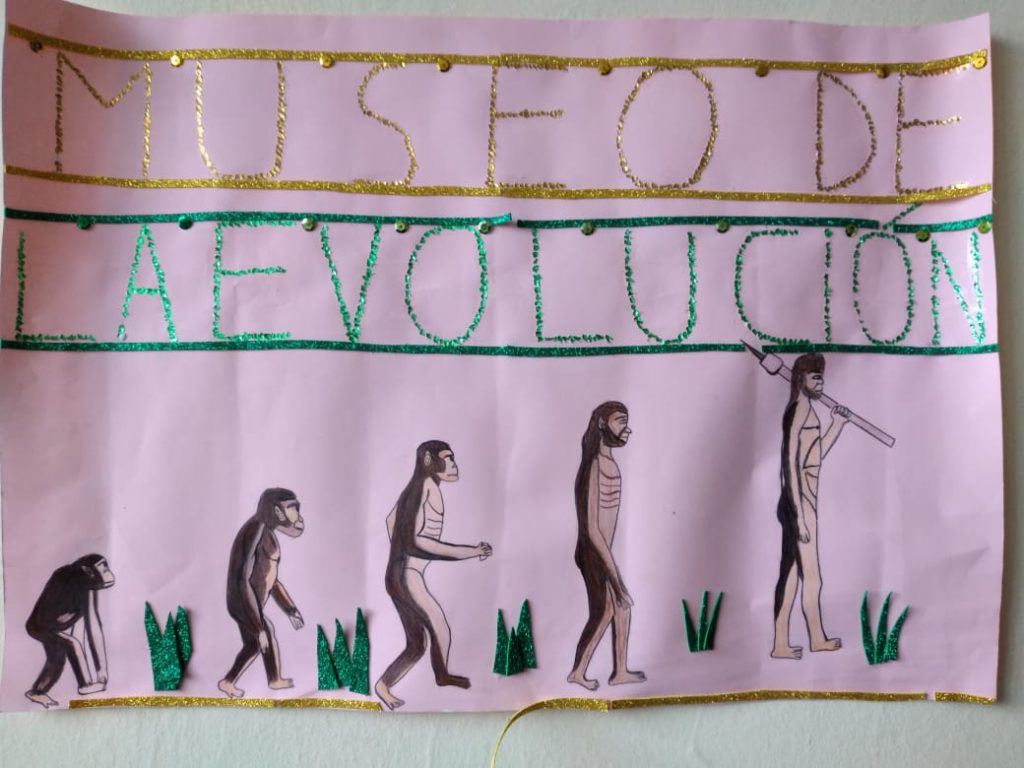 MUSEO DE
LA EVOLUCIÓN